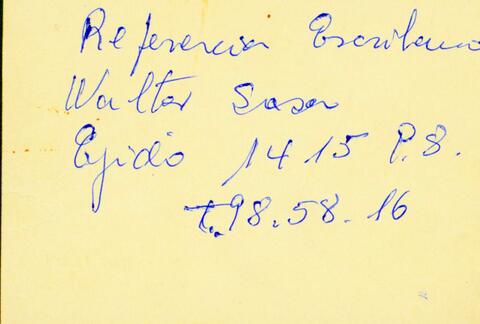 Referencia Escribano
Walter Sosa
Ejido 1415 P.8.
t. 98.58.16